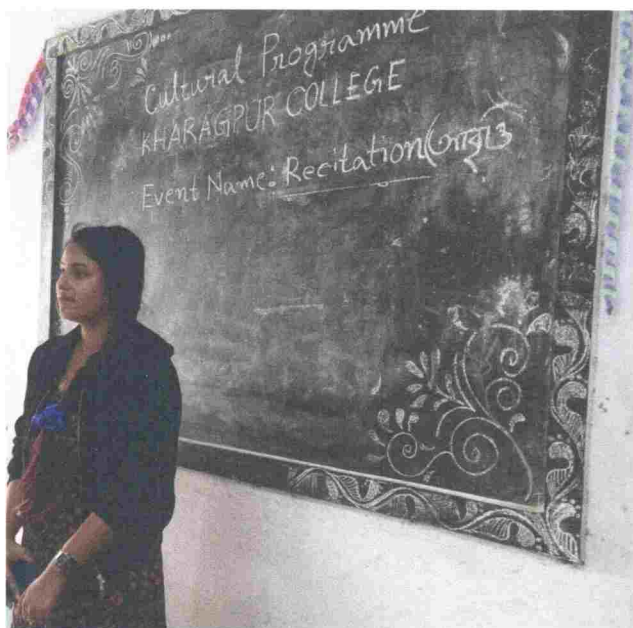 Cultural Programme
KHARAGPUR COLLEGE
Event Name: Recitation (আবৃত্তি